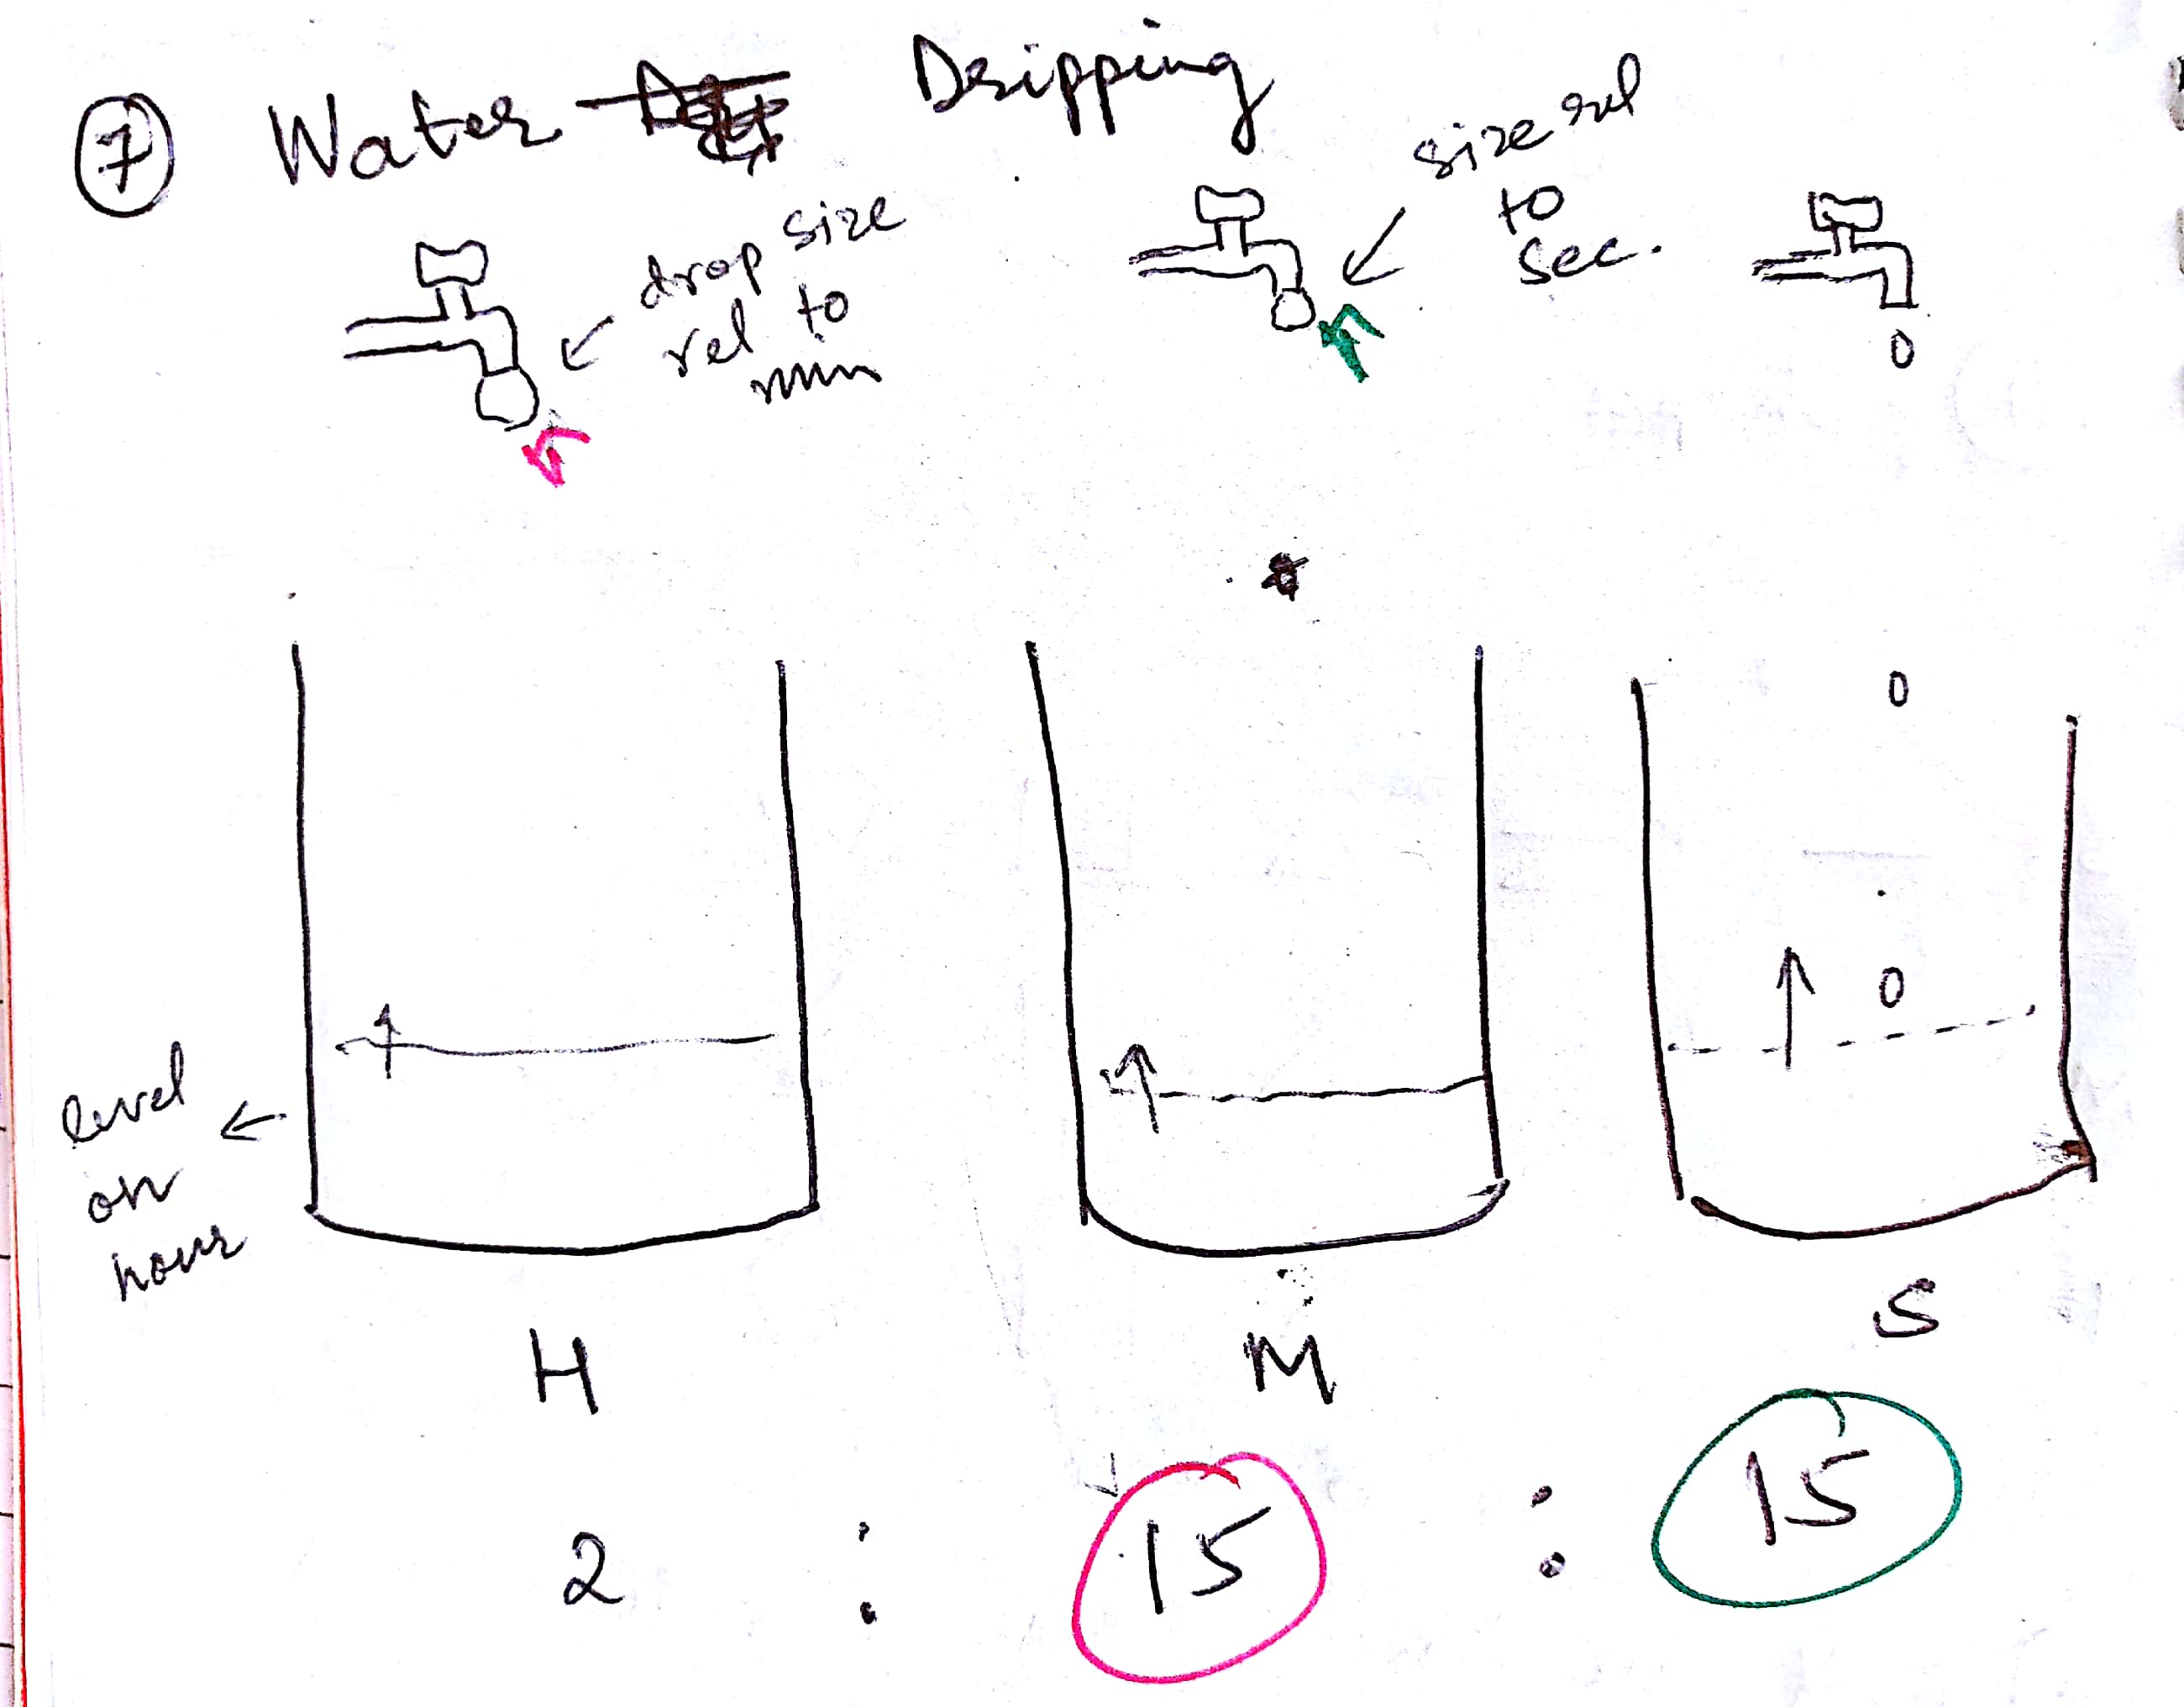 7 Water Dripping
drop size
rel to
min
size rel
to
sec.
level
on
hour
H M S
2 : 15 : 15